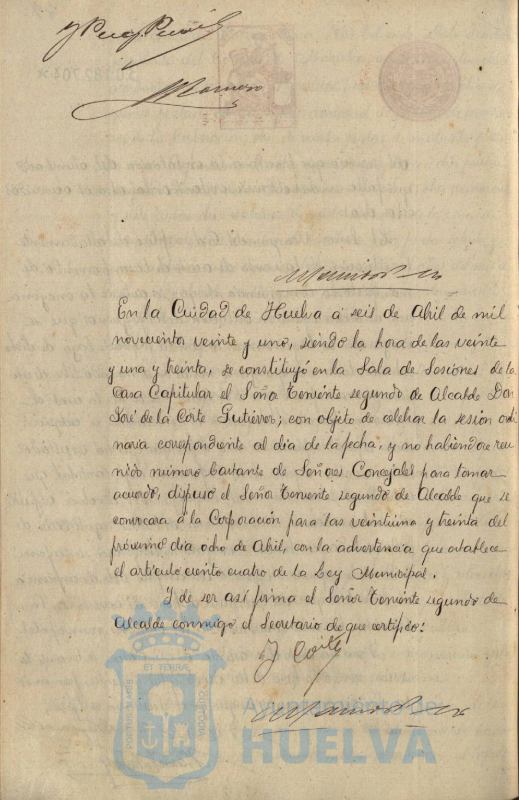 En la Ciudad de Huelva á seis de Abril de mil
novecientos veinte y uno, siendo la hora de las veinte
y una y treinta, se constituyó en la Sala de Sesiones de la
Casa Capitular el Señor Teniente segundo de Alcalde Don
José de la Corte Gutiérrez; con objeto de celebrar la sesión ordi
naria correspondiente al dia de la fecha, y no habiéndose reu
nido número bastante de Señores Concejales para tomar
acuerdo, dispuso el Señor Teniente segundo de Alcalde que se
convocara á la Corporación para las veintiuna y treinta del
próximo dia ocho de Abril, con la advertencia que establece
el artículo ciento cuatro de la Ley Municipal.
Y de ser así firma el Señor Teniente segundo de
Alcalde conmigo el Secretario de que certifico:
J Corte
PORTUS MARIS
ET TERRAE
CUSTODIA
Ayuntamiento de
HUELVA